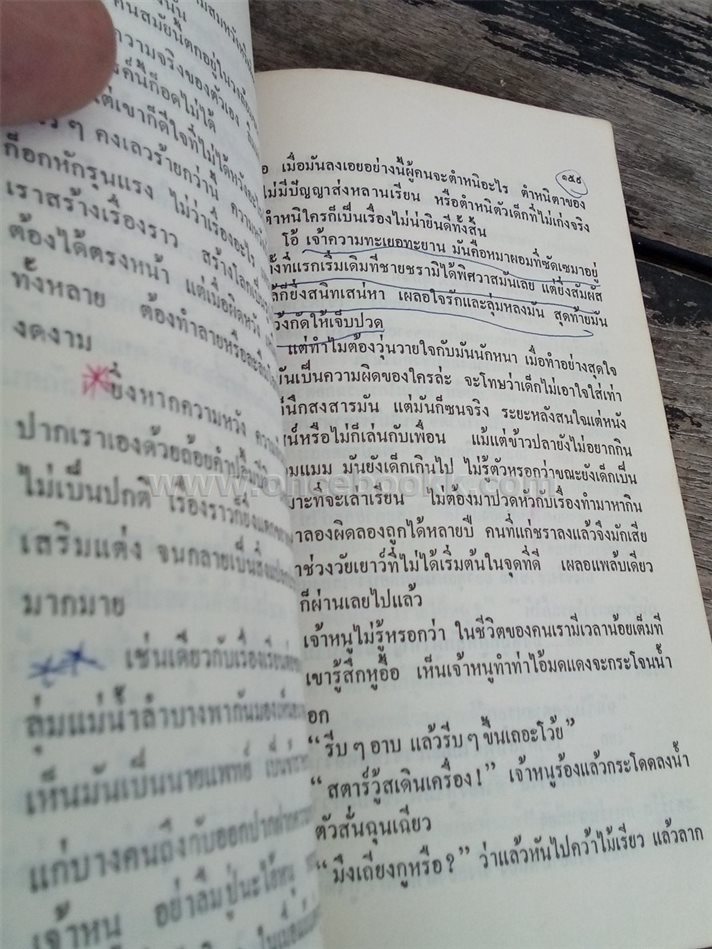 คนสมัยนี้ตกอยู่ใน
ความจริงของตัวเอง
ก็อดไม่ได้
แต่เขาก็ดีใจที่ไม่ได้หวัง
ๆ คงเลวร้ายกว่านี้ ความ
ก็อกหักรุนแรง ไม่ว่าเรื่องอะไร
เราสร้างเรื่องราว สร้างโลก
ต้องได้ตรงหน้า แต่เมื่อผิดหวัง
ทั้งหลาย ต้องทำลายหรือ
งดงาม
ยิ่งหากความหวัง
ปากเราเองด้วยถ้อยคำ
ไม่เป็นปกติ เรื่องราวก็ยิ่ง
เสริมแต่ง จนกลายเป็น
มากมาย
เช่นเดียวกับเรื่องเรียน
ลุ่มแม่น้ำลำบางพากันมอง
เห็นมันเป็นนายแพทย์
แก่บางคนถึงกับออกปาก
เจ้าหนู อย่าลืมปู่นะไอ้หนู
๑๕๙
อ เมื่อมันลงเอยอย่างนี้ผู้คนจะตำหนิอะไร ตำหนิตาของ
ไม่มีปัญญาส่งหลานเรียน หรือตำหนิตัวเด็กที่ไม่เก่งจริง
ตำหนิใครก็เป็นเรื่องไม่น่ายินดีทั้งสิ้น
โอ้ เจ้าความทะเยอทะยาน มันคือหมาผอมที่ซัดเซมาอยู่
ที่แรกเริ่มเดิมทีชายชรามิได้พิศวาสมันเลย แต่ยิ่งสัมผัส
ก็ยิ่งสนิทเสน่หา เผลอใจรักและลุ่มหลงมัน สุดท้ายมัน
กัดให้เจ็บปวด
แต่ทำไมต้องวุ่นวายใจกับมันนักหนา เมื่อทำอย่างสุดใจ
มันเป็นความผิดของใครล่ะ จะโทษว่าเด็กไม่เอาใจใส่เท่า
นึกสงสารมัน แต่มันก็ซนจริง ระยะหลังสนใจแต่หนัง
หรือไม่ก็เล่นกับเพื่อน แม้แต่ข้าวปลายังไม่อยากกิน
อมแมม มันยังเด็กเกินไป ไม่รู้ตัวหรอกว่าขณะยังเด็กเป็น
มาะที่จะเล่าเรียน ไม่ต้องมาปวดหัวกับเรื่องทำมาหากิน
ลองผิดลองถูกได้หลายปี คนที่แก่ชราลงแล้วจึงมักเสีย
ช่วงวัยเยาว์ที่ไม่ได้เริ่มต้นในจุดที่ดี เผลอแพล็บเดียว
ก็ผ่านเลยไปแล้ว
เจ้าหนูไม่รู้หรอกว่า ในชีวิตของคนเรามีเวลาน้อยเต็มที
เขารู้สึกหูอื้อ เห็นเจ้าหนูทำท่าไอ้มดแดงจะกระโจนน้ำ
อก
“รีบๆอาบ แล้วรีบๆขึ้นเถอะโว้ย”
“สตาร์วู้สเดินเครื่อง!” เจ้าหนูร้องแล้วกระโดดลงน้ำ
ตัวสั่นฉุนเฉียว
“มึงเถียงกูหรือ?” ว่าแล้วหันไปคว้าไม้เรียว แล้วลาก
www.oncebooks.com